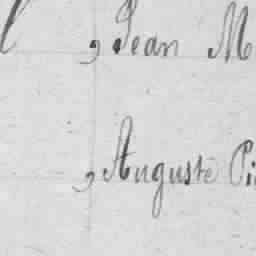 , Jean M
, Auguste Pi